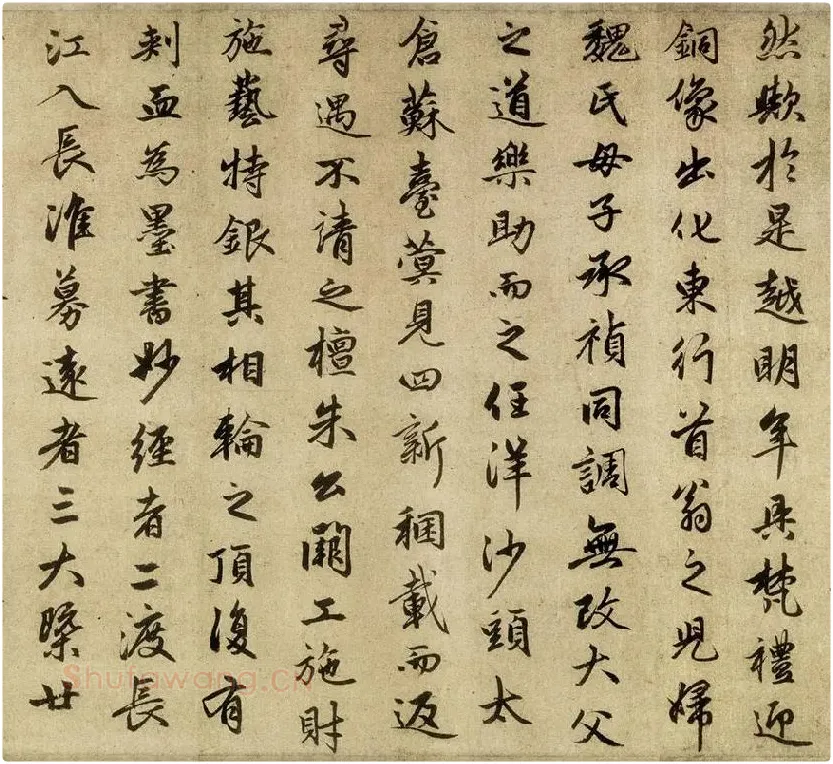 然歟於是越明年具梵禮迎
銅像出化東行首翁之兒婦
魏氏母子承禎同調無改大父
之道樂助而之任洋沙頭太
倉蘇臺蓂見四新稛載而返
尋遇不請之檀朱公闓工施財
施藝特銀其相輪之頂復有
刺血為墨書妙經者二渡長
江入長淮募遠者三大槩廿
Shufawang.cn